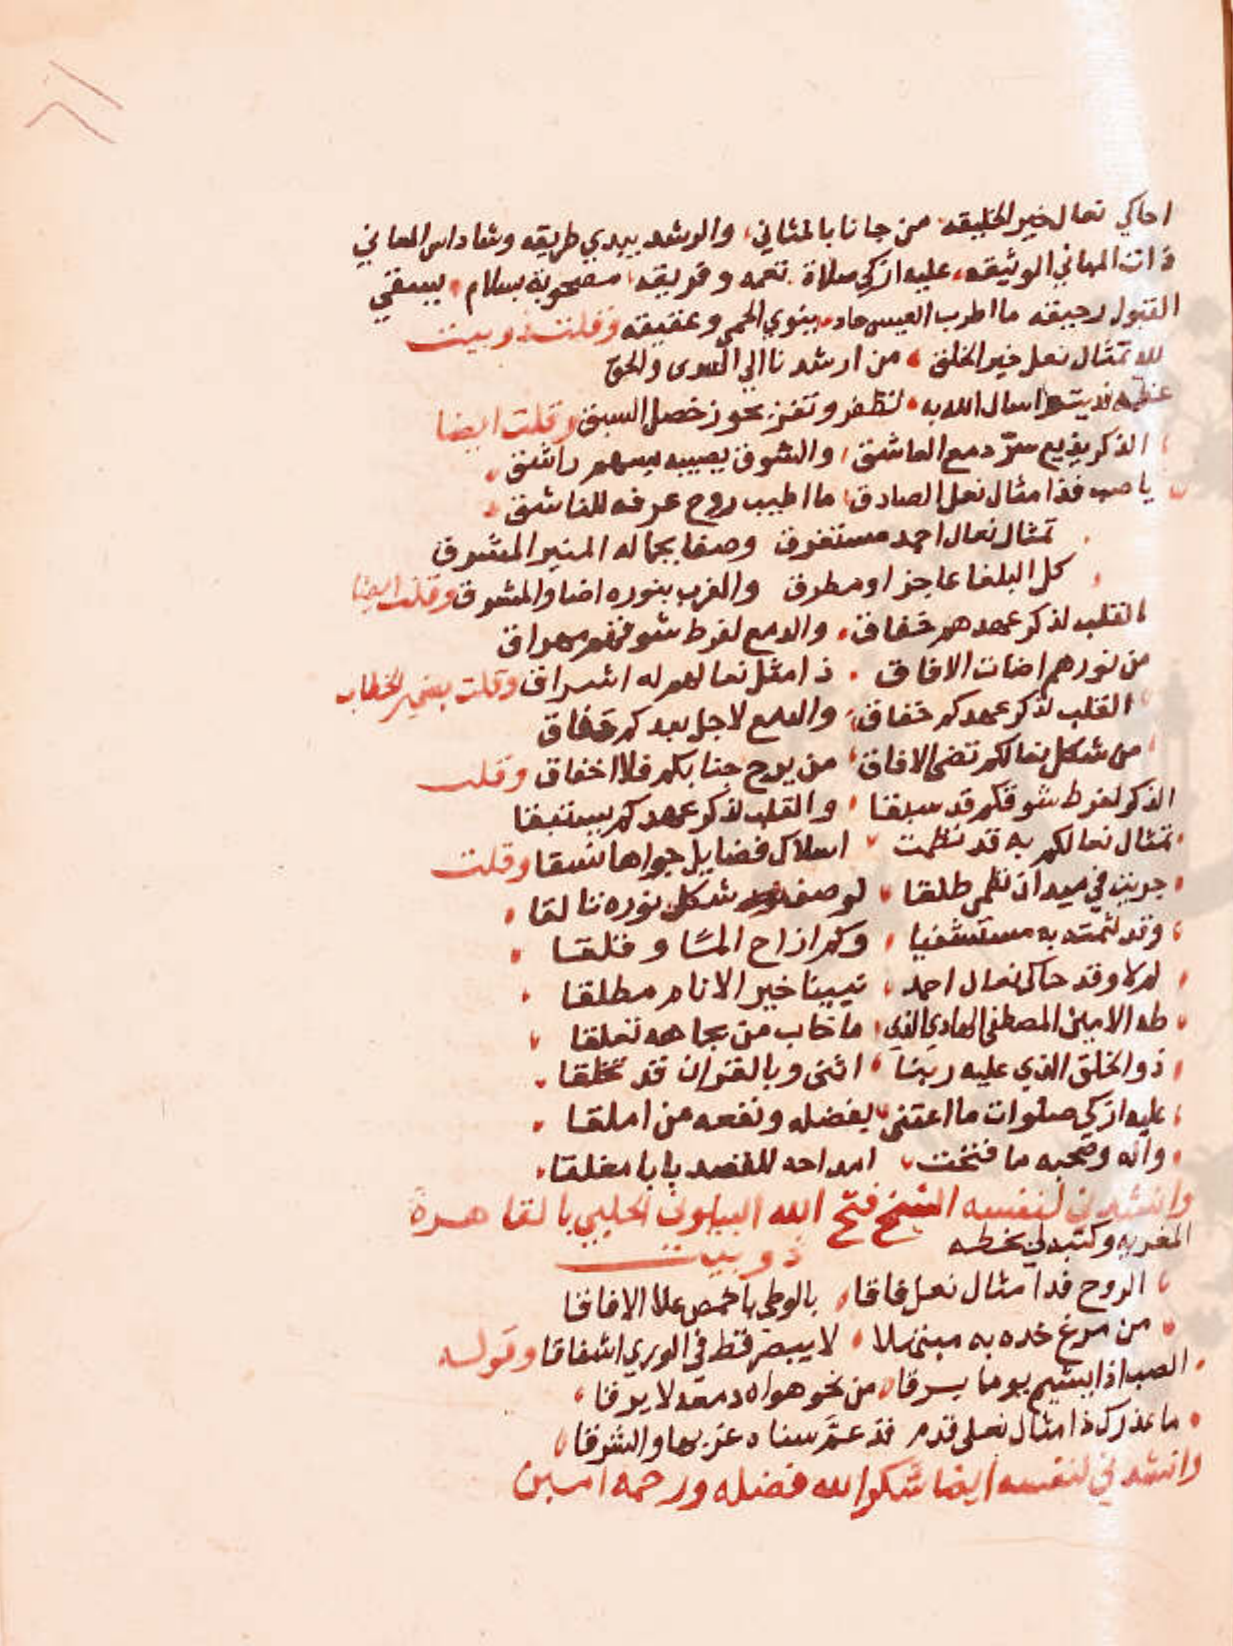 احاكي نعال خير الخليقه من جانا بالمثاني والرشد يبدي طريقه وشاد اس المعاني
ذات المباني الوثيقه عليه ازكى صلاة تعمه وفريقه مصحوبة بسلام يسقي
القبول رحيقه ما اطرب العيس حاد بنوي الحمى وعقيقه وقلت ذو بيت
لله تمثال نعل خير الخلق من ارشدنا الي الهدى والحق
اسال الله به لتظفر وتفز بحوز خصل السبق وقلت ايضا
الذكر يذيع سرّ دمع العاشق والشوق يصيبه بسهم راشق
يا صب فذا مثال نعل الصادق ما اطيب روح عرفه للناشق
تمثال نعال احمد مستغرق وصفا بجماله المنير المشرق
كل البلغا عاجز او مطرق والغرب بنوره اضا والمشرق وقلت ايضا
القلب لذكر عهدهم خفاق والدمع لفرط شوقهم مهراق
من نورهم اضات الافاق ذا مثل نعالهم له اشراق وقلت بضمير الخطاب
القلب لذكر عهدكم خفاق والدمع لاجل بعدكم
من شكل نعالكم تضي الافاق من يرح جنابكم فلا اخفاق وقلت
الذكر لفرط شوقكم قد سبقا والقلب لذكر عهدكم
تمثال نعالكم به قد نظمت اسلاك فضايل جواها نسقا وقلت
جريت في ميدان نظمي طلقا لوصف شكل نوره تالقا
وقد لثمته به مستشفيا وكم ازاح المسا وقلقا
لم لا وقد حاكى نعال احمد نبينا خير الانام مطلقا
طه الامين المصطفى الهادي الذي ما خاب من بجاهه تعلقا
ذو الخلق الذي عليه ربنا اثنى وبالقران قد تخلقا
عليه ازكي صلوات ما اعتنى بفضله ونفعه من املقا
واله وصحبه ما فتحت امداحه للقصد بابا مغلقا
وانشدني لنفسه الشيخ فتح الله البيلوني الحلبي بالقاهرة
المغربه وكتبه لي بخطه ذو بيت
الروح فدا مثال نعل فاقا بالوطي باخمص علا الافاقا
من مرغ خده به لا يبصر قط في الوري اشفاقا وقوله
الصب اذا يشيم يوما برقا من نحو هواه دمعه لا يرقا
ما عذرك ذا مثال نعلى قدم قد عمّ سناه غربها والشرقا
وانشدني لنفسه ايضا شكر الله فضله ورحمه امين